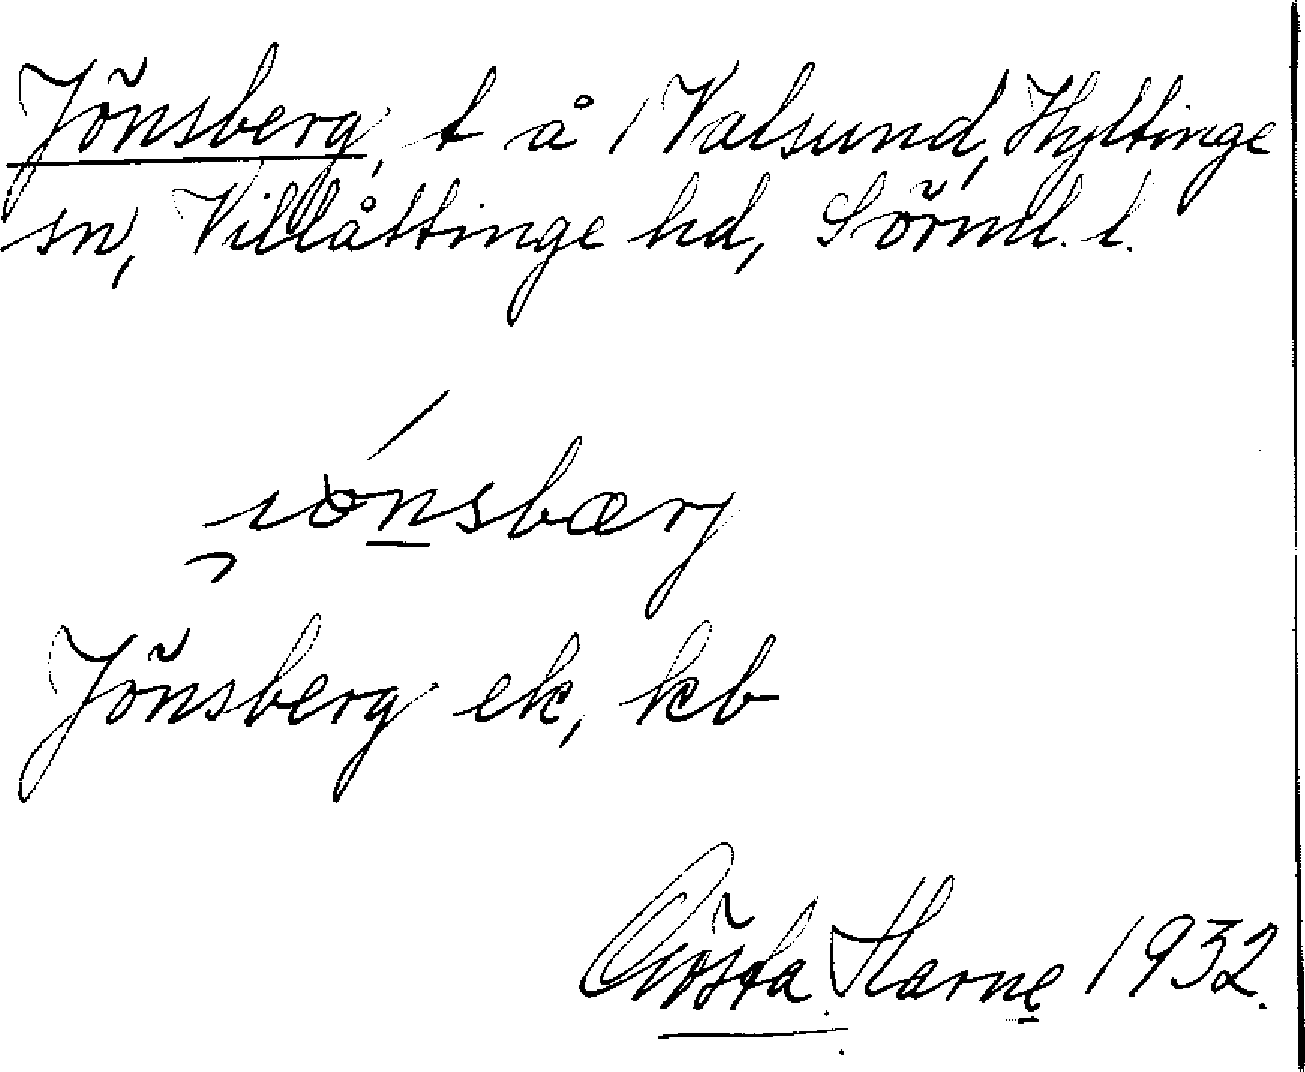 Jönsberg, t å 1 Valsund, Hyltinge
sn, Villåttinge hd, Sörml. l.
Jönsberg ek, kb
Gösta Harne 1932.